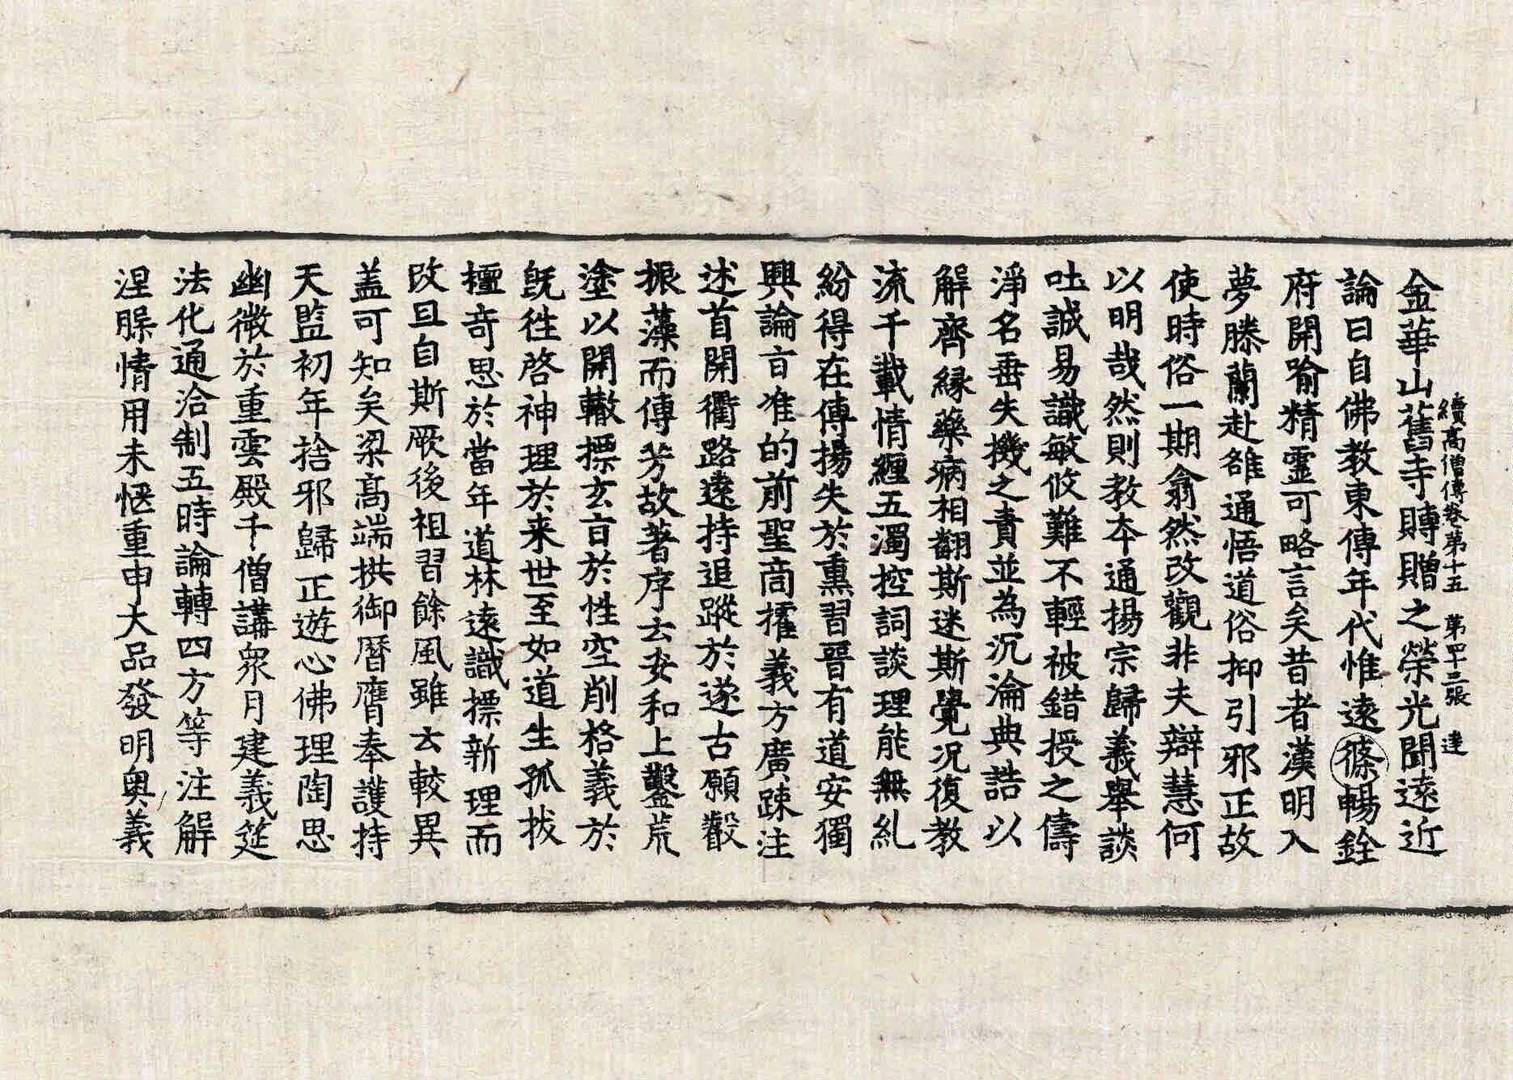 續高僧傳卷第十五 第四十三張 達
金華山舊寺賻贈之榮光聞遠近
論曰自佛教東傳年代惟遠條暢銓
府開喻精靈可略言矣昔者漢明入
夢滕蘭赴雒通悟道俗抑引邪正故
使時俗一期翕然改觀非夫辯慧何
以明哉然則教本通揚宗歸義舉談
吐誠易識敏攸難不輕被錯授之儔
淨名垂失機之責並為沉淪典誥以
解齊緣藥病相翻斯迷斯覺況復教
流千載情纏五濁控詞談理能無紕
紛得在傳揚失於熏習晉有道安獨
興論旨准的前聖商擢義方廣踈注
述首開衢路遠持追蹤於遂古願觀
振藻而傳芳故著序云安和上鑿荒
塗以開轍摽玄旨於性空削格義於
既徃啓神理於来世至如道生孤拔
擅竒思於當年道林遠識摽新理而
改旦自斯厥後祖習餘風雖云較異
盖可知矣梁髙端拱御曆膺奉護持
天監初年捨邪歸正遊心佛理陶思
幽微於重雲殿千僧講衆月建義筵
法化通洽制五時論轉四方等注解
涅槃情用未愜重申大品發明奧義